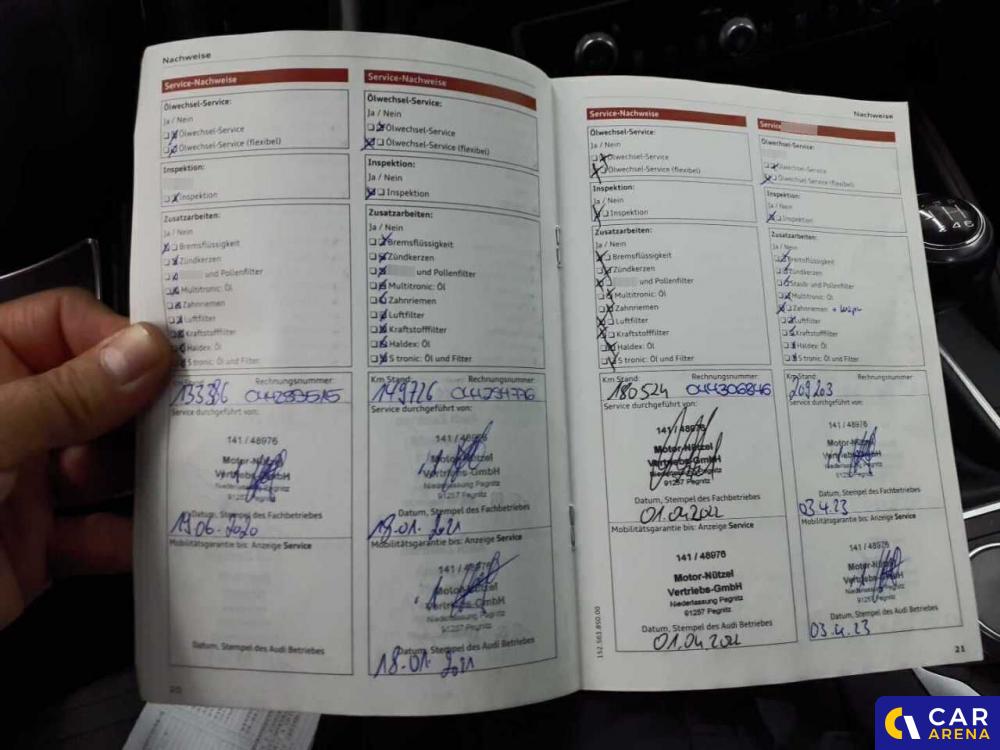 Nachweise
Service-Nachweise
Ölwechsel-Service:
Ja / Nein
Ölwechsel-Service
Ölwechsel-Service (flexibel)
Inspektion:
Inspektion
Zusatzarbeiten:
Ja / Nein
Bremsflüssigkeit
Zündkerzen
und Pollenfilter
Multitronic: Öl
Zahnriemen
Luftfilter
Kraftstofffilter
Haldex: Öl
S tronic: Öl und Filter
Rechnungsnummer:
Service durchgeführt von:
141 / 48976
Motor-Nützel
Vertriebs-GmbH
Niederlassung Pegnitz
91257 Pegnitz
Datum, Stempel des Fachbetriebes
19.06.2020
Mobilitätsgarantie bis: Anzeige Service
Datum, Stempel des Audi Betriebes
20
Service-Nachweise
Ölwechsel-Service:
Ja / Nein
Ölwechsel-Service
Ölwechsel-Service (flexibel)
Inspektion:
Ja / Nein
Inspektion
Zusatzarbeiten:
Ja / Nein
Bremsflüssigkeit
Zündkerzen
und Pollenfilter
Multitronic: Öl
Zahnriemen
Luftfilter
Kraftstofffilter
Haldex: Öl
S tronic: Öl und Filter
Km Stand: Rechnungsnummer:
149726
Service durchgeführt von:
141 / 48976
Motor-Nützel
Vertriebs-GmbH
Niederlassung Pegnitz
91257 Pegnitz
Datum, Stempel des Fachbetriebes
18.01.2021
Mobilitätsgarantie bis: Anzeige Service
141 / 48976
Motor-Nützel
Vertriebs-GmbH
Niederlassung Pegnitz
91257 Pegnitz
Datum, Stempel des Audi Betriebes
18.01.2021
Service-Nachweise
Ölwechsel-Service:
Ja / Nein
Ölwechsel-Service
Ölwechsel-Service (flexibel)
Inspektion:
Ja / Nein
Inspektion
Zusatzarbeiten:
Ja / Nein
Bremsflüssigkeit
Zündkerzen
und Pollenfilter
Multitronic: Öl
Zahnriemen
Luftfilter
Kraftstofffilter
Haldex: Öl
S tronic: Öl und Filter
Km Stand: Rechnungsnummer:
180524 044306846
Service durchgeführt von:
141 / 48976
Motor-Nützel
Vertriebs-GmbH
Niederlassung Pegnitz
91257 Pegnitz
Datum, Stempel des Fachbetriebes
01.04.2022
Mobilitätsgarantie bis: Anzeige Service
141 / 48976
Motor-Nützel
Vertriebs-GmbH
Niederlassung Pegnitz
91257 Pegnitz
Datum, Stempel des Audi Betriebes
01.04.2022
152.563.850.00
Nachweise
Service
Ölwechsel-Service:
Ölwechsel-Service
Ölwechsel-Service (flexibel)
Inspektion:
Ja / Nein
Inspektion
Zusatzarbeiten:
Ja / Nein
Bremsflüssigkeit
Zündkerzen
Staub- und Pollenfilter
Multitronic: Öl
Zahnriemen
Luftfilter
Kraftstofffilter
Haldex: Öl
S tronic: Öl und Filter
Km Stand: Rechnungsnummer:
209203
Service durchgeführt von:
141 / 48976
Motor-Nützel
Vertriebs-GmbH
Niederlassung Pegnitz
91257 Pegnitz
Datum, Stempel des Fachbetriebes
03.4.23
Mobilitätsgarantie bis: Anzeige Service
141 / 48976
Motor-Nützel
Vertriebs-GmbH
Niederlassung Pegnitz
91257 Pegnitz
Datum, Stempel des Audi Betriebes
03.4.23
21
CAR
ARENA